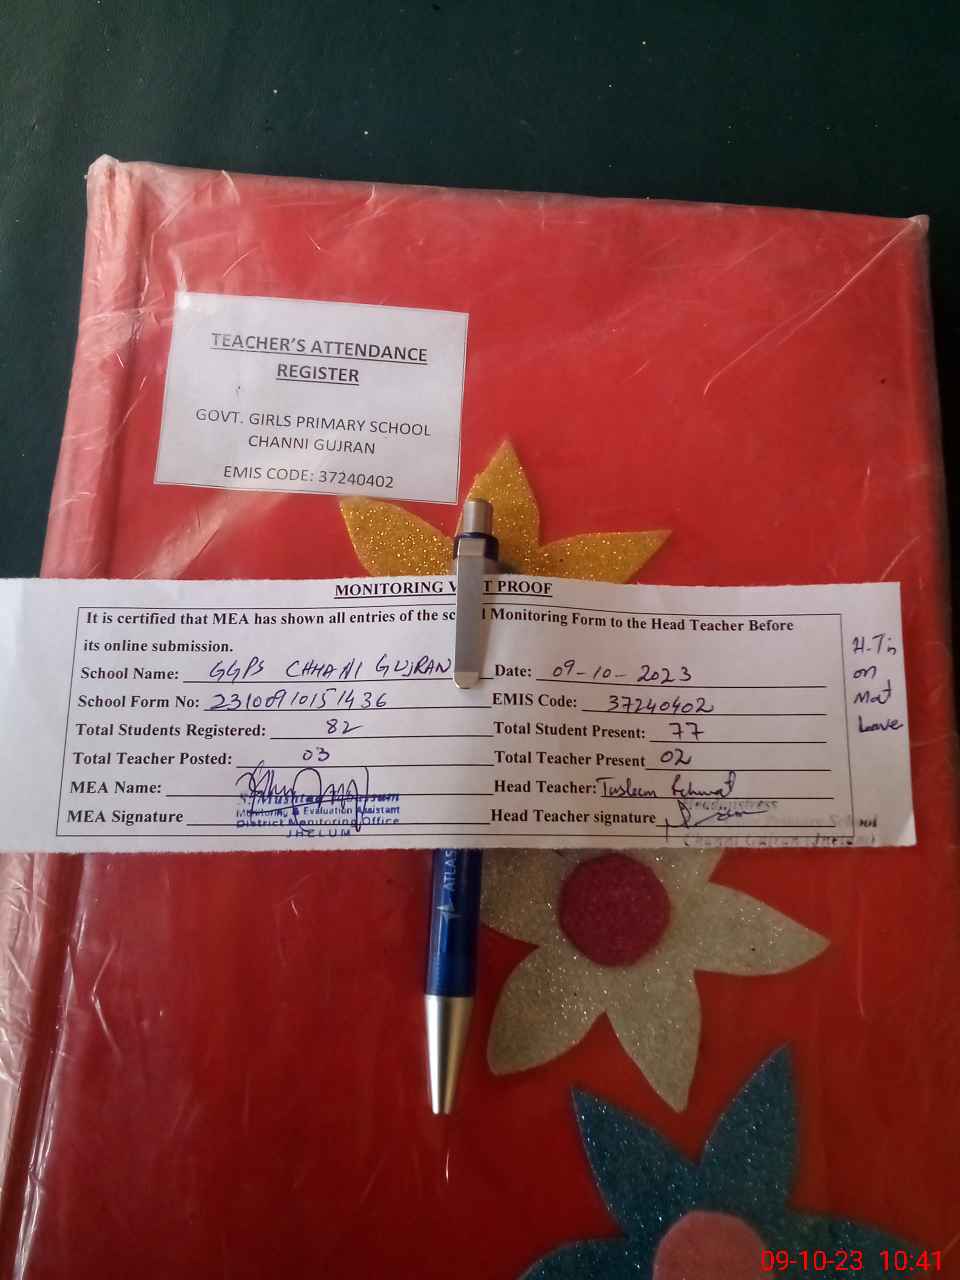 TEACHER'S ATTENDANCE
REGISTER
GOVT. GIRLS PRIMARY SCHOOL
CHANNI GUJRAN
EMIS CODE: 37240402
MONITORING V T PROOF
It is certified that MEA has shown all entries of the sc l Monitoring Form to the Head Teacher Before
its online submission.
School Name: GGPS CHHANI GUJRAN Date: 09-10-2023
School Form No: 23100910151436 EMIS Code: 37240402
Total Students Registered: 82 Total Student Present: 77
Total Teacher Posted: 03 Total Teacher Present 02
MEA Name: Head Teacher: Tasleem
MEA Signature Head Teacher signature
Monitoring & Evaluation Assistant
District Monitoring Office
JHELUM
Headmistress
Primary School
Channi Gujran (Jhelum)
H.T is
on
Leave
ATLAS
09-10-23 10:41